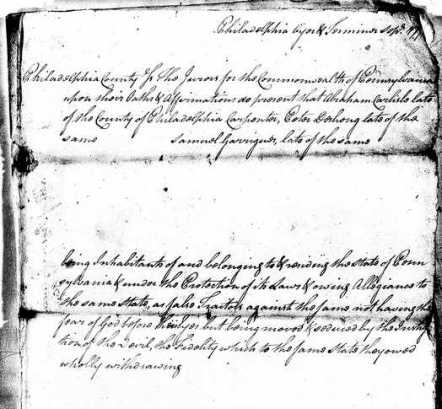 Philadelphia Oyer & Terminer Sept. 17
Philadelphia County ss The Jurors for the Commonwealth of Pennsylvania
upon their Oaths & Affirmations do present that Abraham Carlisle late
of the County of Philadelphia Carpenter, Peter Deshong late of the
same Samuel Garrigues, late of the same
being Inhabitants of and belonging to & residing the State of Penn
sylvania & under the Protection of its Laws & owing Allegiance to
the same State, as false Traitors against the same not having the
fear of God before their Eyes but being moved & seduced by the Instiga
tion of the Devil, the Fidelity which to the same State they owed
wholly withdrawing